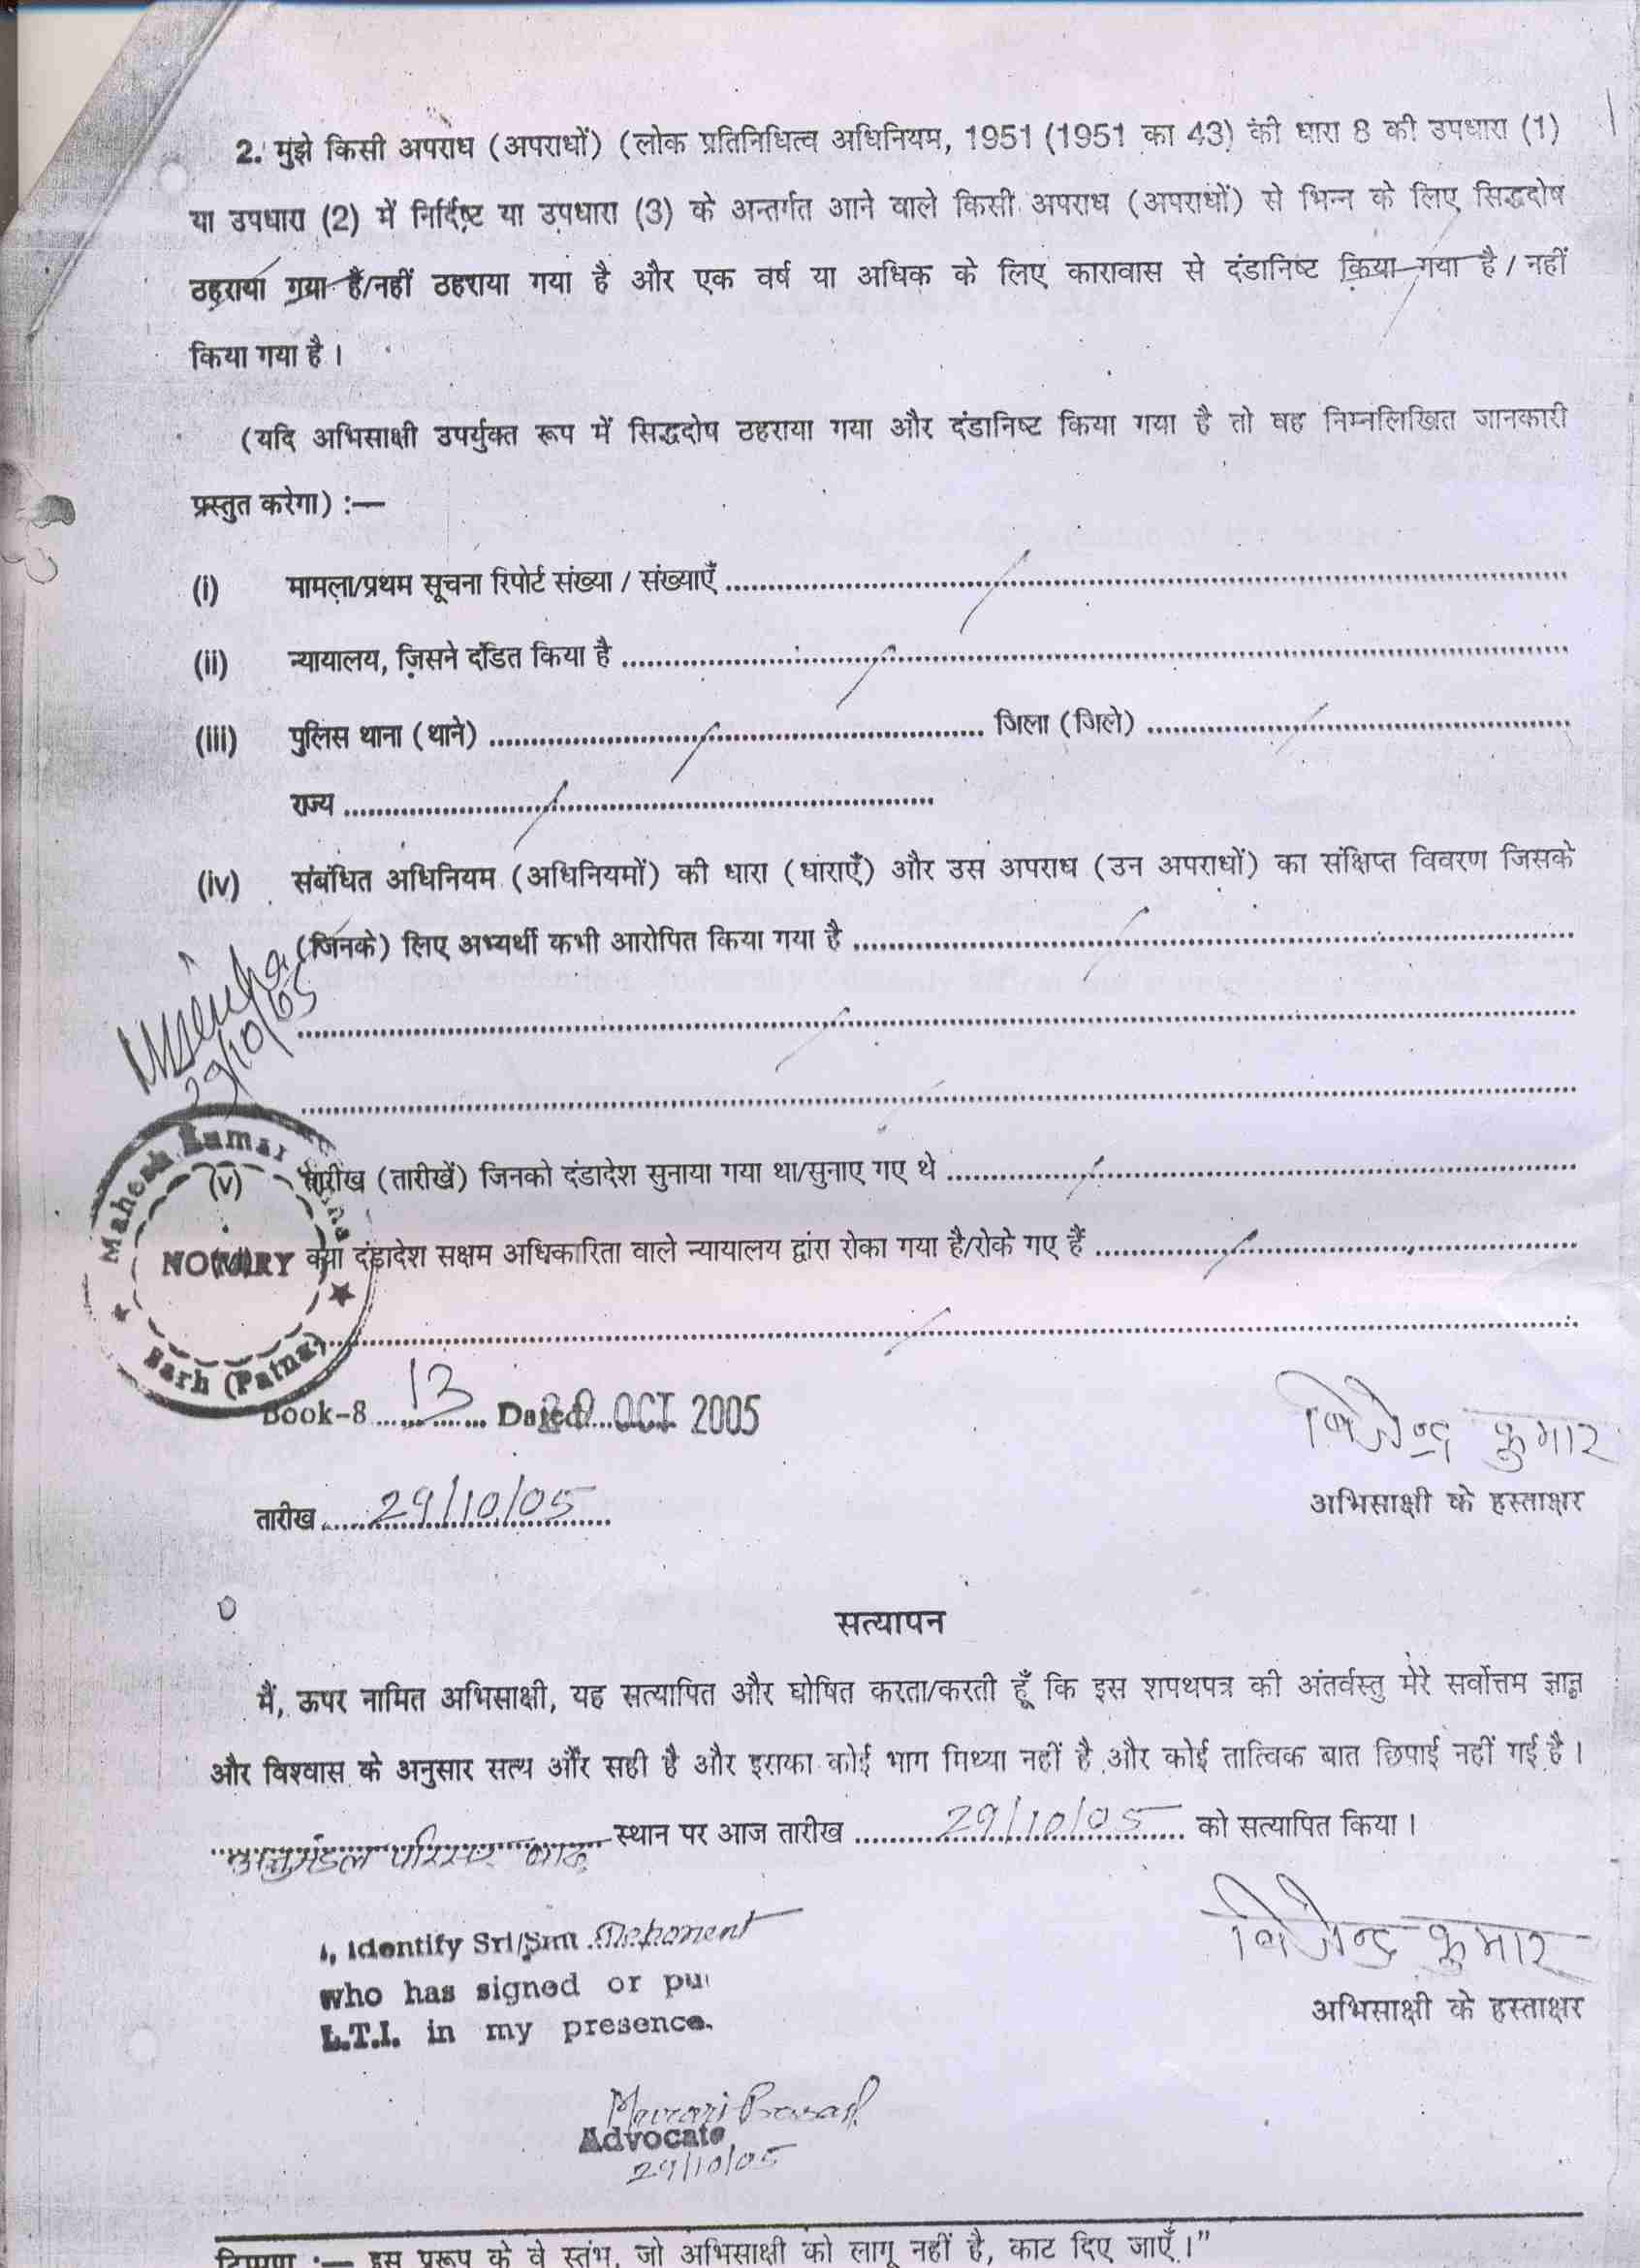 2. मुझे किसी अपराध (अपराधों) (लोक प्रतिनिधित्व अधिनियम, 1951 (1951 का 43) की धारा 8 की उपधारा (1)
या उपधारा (2) में निर्दिष्ट या उपधारा (3) के अन्तर्गत आने वाले किसी अपराध (अपराधों) से भिन्न के लिए सिद्धदोष
ठहराया गया है/नहीं ठहराया गया है और एक वर्ष या अधिक के लिए कारावास से दंडानिष्ट किया गया है / नहीं
किया गया है।
(यदि अभिसाक्षी उपर्युक्त रूप में सिद्धदोष ठहराया गया और दंडानिष्ट किया गया है तो वह निम्नलिखित जानकारी
प्रस्तुत करेगा) :—
(i) मामला/प्रथम सूचना रिपोर्ट संख्या / संख्याएँ ..........
(ii) न्यायालय, जिसने दंडित किया है ..........
(iii) पुलिस थाना (थाने) .......... जिला (जिले) ..........
राज्य ..........
(iv) संबंधित अधिनियम (अधिनियमों) की धारा (धाराएँ) और उस अपराध (उन अपराधों) का संक्षिप्त विवरण जिसके
(जिनके) लिए अभ्यर्थी कभी आरोपित किया गया है ..........
29/10/05
Mahesh Kumar
(v) तारीख (तारीखें) जिनको दंडादेश सुनाया गया था/सुनाए गए थे ..........
NOTARY क्या दंडादेश सक्षम अधिकारिता वाले न्यायालय द्वारा रोका गया है/रोके गए हैं ..........
Barh (Patna)
Book-8 .... 13 .... Dated 29 OCT 2005
विजेन्द्र कुमार
तारीख .... 29/10/05 ....
अभिसाक्षी के हस्ताक्षर
सत्यापन
मैं, ऊपर नामित अभिसाक्षी, यह सत्यापित और घोषित करता/करती हूँ कि इस शपथपत्र की अंतर्वस्तु मेरे सर्वोत्तम ज्ञान
और विश्वास के अनुसार सत्य और सही है और इसका कोई भाग मिथ्या नहीं है और कोई तात्विक बात छिपाई नहीं गई है।
अनुमंडल परिसर बाढ़ स्थान पर आज तारीख .... 29/10/05 .... को सत्यापित किया।
I, Identify Sri/Smt Deponent
who has signed or pu
L.T.I. in my presence.
विजेन्द्र कुमार
अभिसाक्षी के हस्ताक्षर
Murari Prasad
Advocate
29/10/05
टिप्पण :— इस प्ररूप के वे स्तंभ, जो अभिसाक्षी को लागू नहीं है, काट दिए जाएँ।"